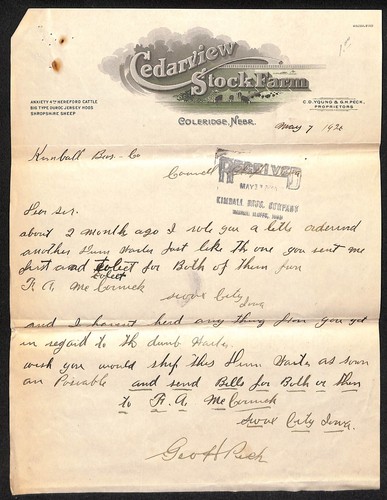 Cedarview
Stock Farm
ANXIETY 4TH HEREFORD CATTLE
BIG TYPE DUROC JERSEY HOGS
SHROPSHIRE SHEEP
C.D. YOUNG & G.H. PECK,
PROPRIETORS
COLERIDGE, NEBR.
May 7 1920
Kimball Bros - Co
Council
RECEIVED
MAY
KIMBALL BROS. COMPANY
COUNCIL BLUFFS, IOWA
Dear sir.
about 2 month ago I rote you a letter ordering
another Dum Waiter Just like th one you sent me
first and for Both of them from
F. A. Mc Cormick
Sioux City
Iowa
and I havent herd any thing from you yet
in regard to th dumb Waiter.
wish you would ship this Dum Waiter as soon
as Posiable and send Bills for Both or them
to F. A. Mc Cormick
Sioux City Iowa.
Geo H Peck